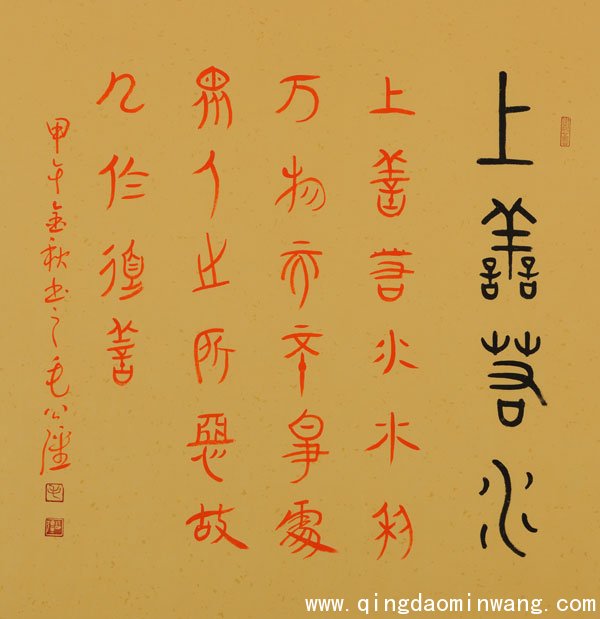 上善若水
上善若水水利
万物而不争處
眾人之所惡故
几於道善
甲午金秋书之毛公
www.qingdaominwang.com